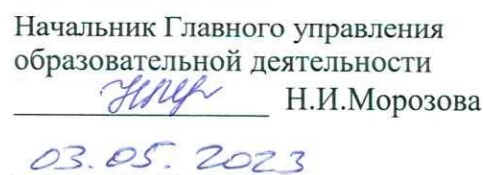 Начальник Главного управления
образовательной деятельности
Н.И.Морозова
03.05.2023